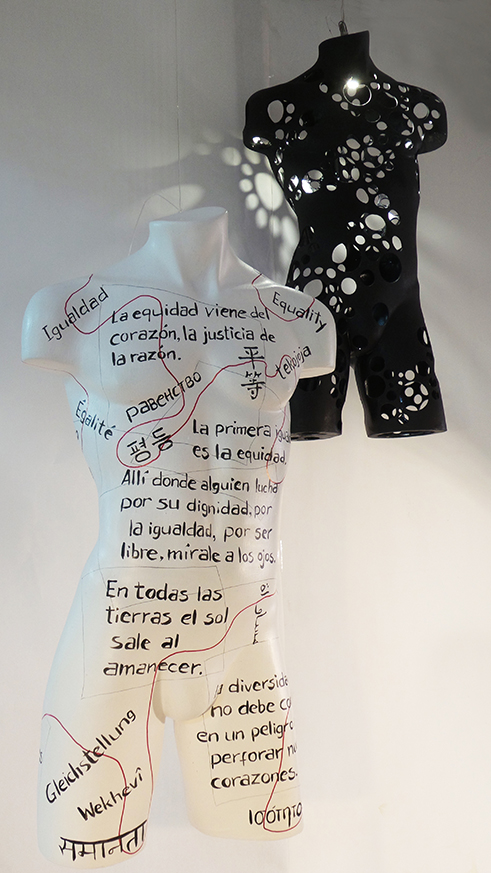 Igualdad
Equality
La equidad viene del
corazón, la justicia de
la razón.
平等
tekojoja
равенство
Égalité
평등
La primera
es la equidad.
Allí donde alguien lucha
por su dignidad, por
la igualdad, por ser
libre, mírale a los ojos.
En todas las
tierras el sol
sale al
amanecer.
diversid
no debe
en un peligro
perforar
corazones.
Gleichstellung
Wekhevî
समानता
ισότητα